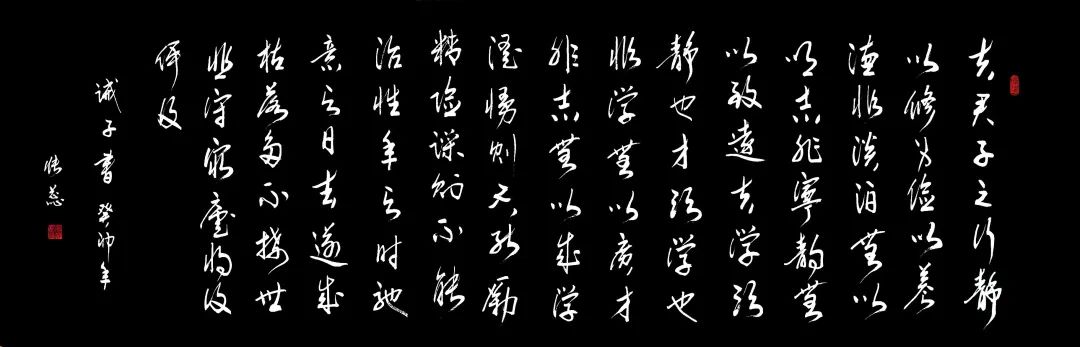 夫君子之行静
以修身俭以养
德非淡泊無以
明志非寧静無
以致遠夫学须
静也才须学也
非学無以廣才
非志無以成学
淫慢则不能励
精险躁则不能
治性年与时驰
意与日去遂成
枯落多不接世
悲守穷廬将復
何及
诫子書 癸卯年
张蕊